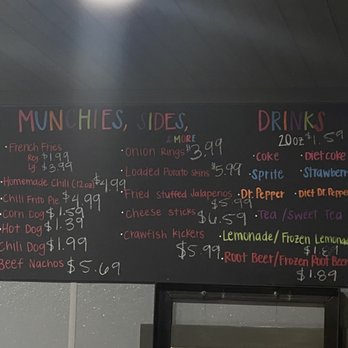 MUNCHIES, SIDES,
& MORE
• French Fries
Reg $1.99
Lg $3.99
• Homemade Chili (12oz) $4.99
• Chili Frito Pie $4.99
• Corn Dog $1.59
• Hot Dog $1.39
Chili Dog $1.99
Beef Nachos $5.69
• Onion Rings $3.99
• Loaded Potato Skins $5.99
• Fried Stuffed Jalapenos
$5.99
• Cheese sticks $6.59
• Crawfish kickers
$5.99
DRINKS
20oz $1.59
• Coke • Diet coke
• Sprite
• Dr. Pepper • Diet Dr. Pepper
• Tea / Sweet Tea
• Lemonade/ Frozen Lemonade
$1.89
• Root Beer/Frozen Root Beer
$1.89